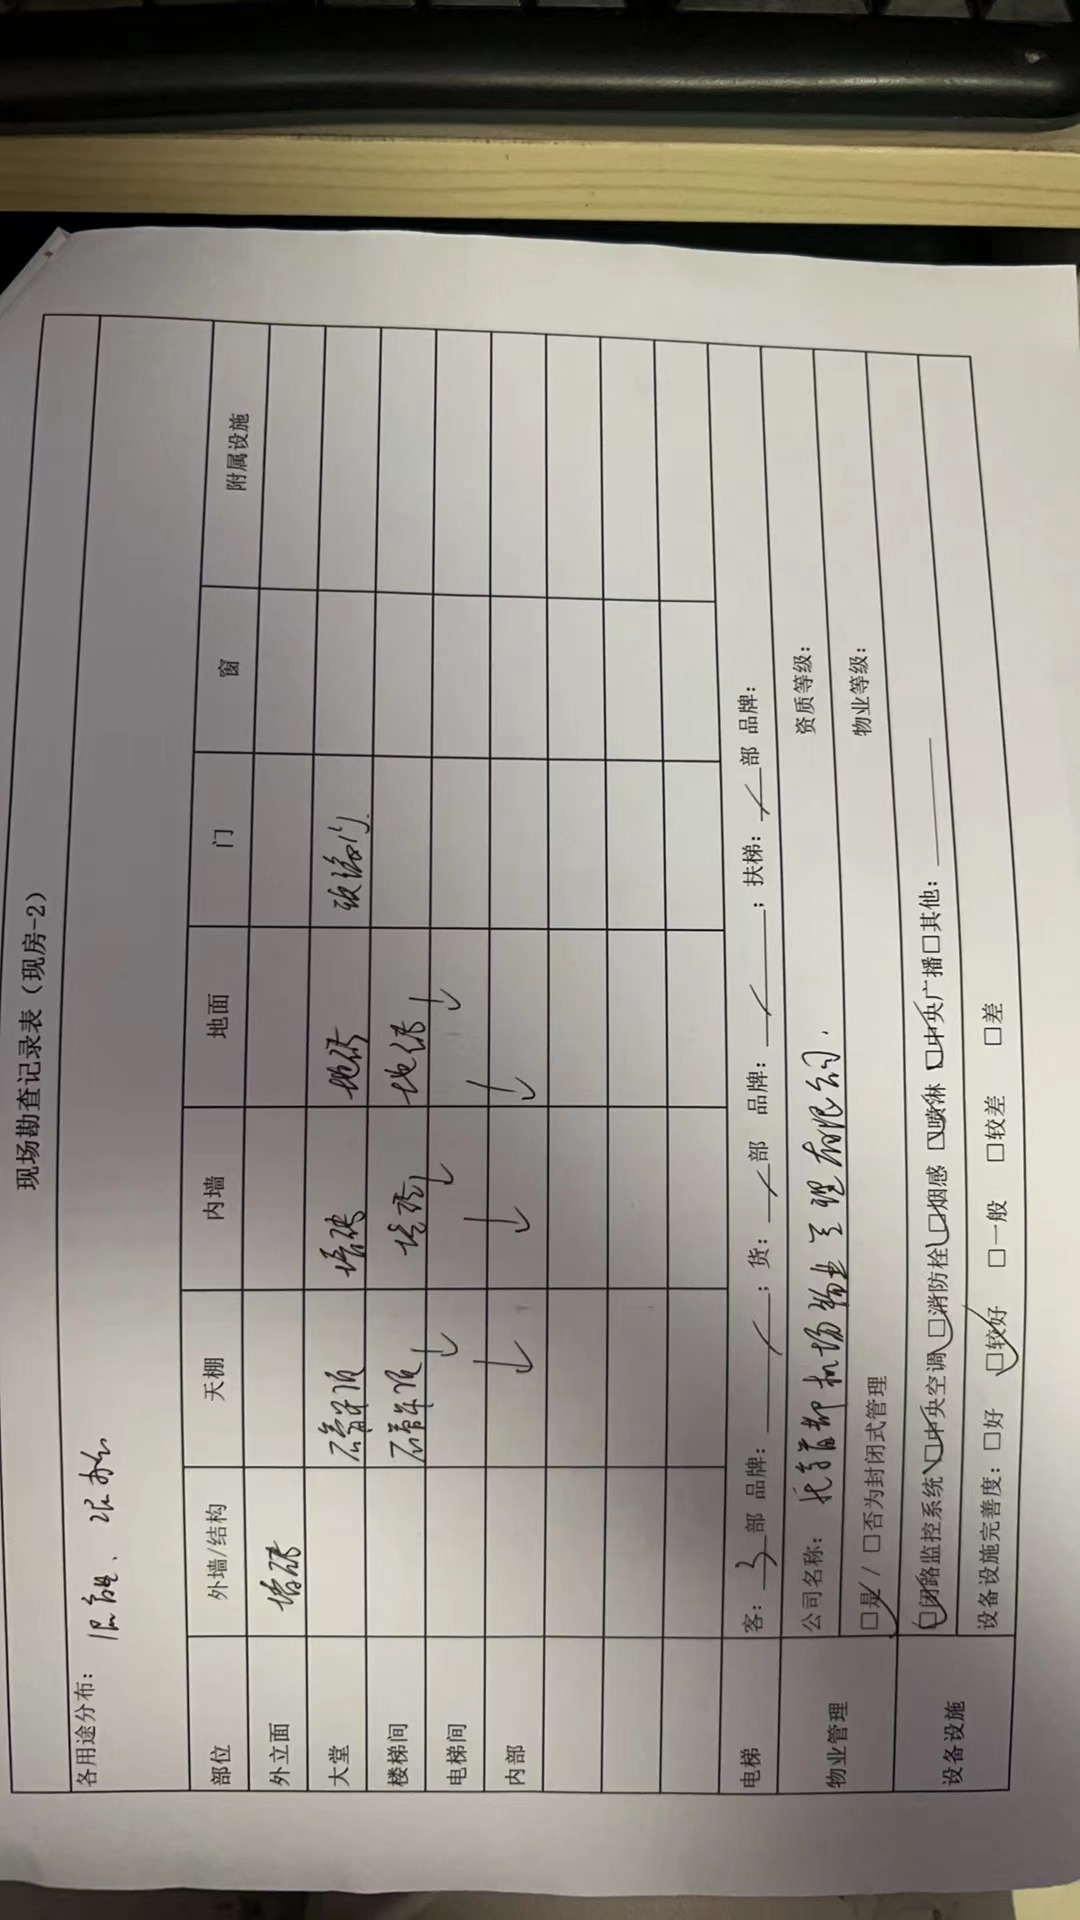 现场勘查记录表（现房-2）
各用途分布：
部位 外墙/结构 天棚 内墙 地面 门 窗 附属设施
外立面 墙砖
大堂 石膏吊顶 墙砖 地砖 玻璃门
楼梯间 石膏吊顶 墙砖 地砖
电梯间
内部
电梯 客：3部 品牌：/；货：/部 品牌：/；扶梯：/部 品牌：
物业管理 公司名称：首都机场物业管理有限公司 资质等级：
☑是/□否为封闭式管理 物业等级：
设备设施 ☑闭路监控系统☑中央空调☑消防栓☑烟感☑喷淋☑中央广播□其他：
设备设施完善度：□好 ☑较好 □一般 □较差 □差